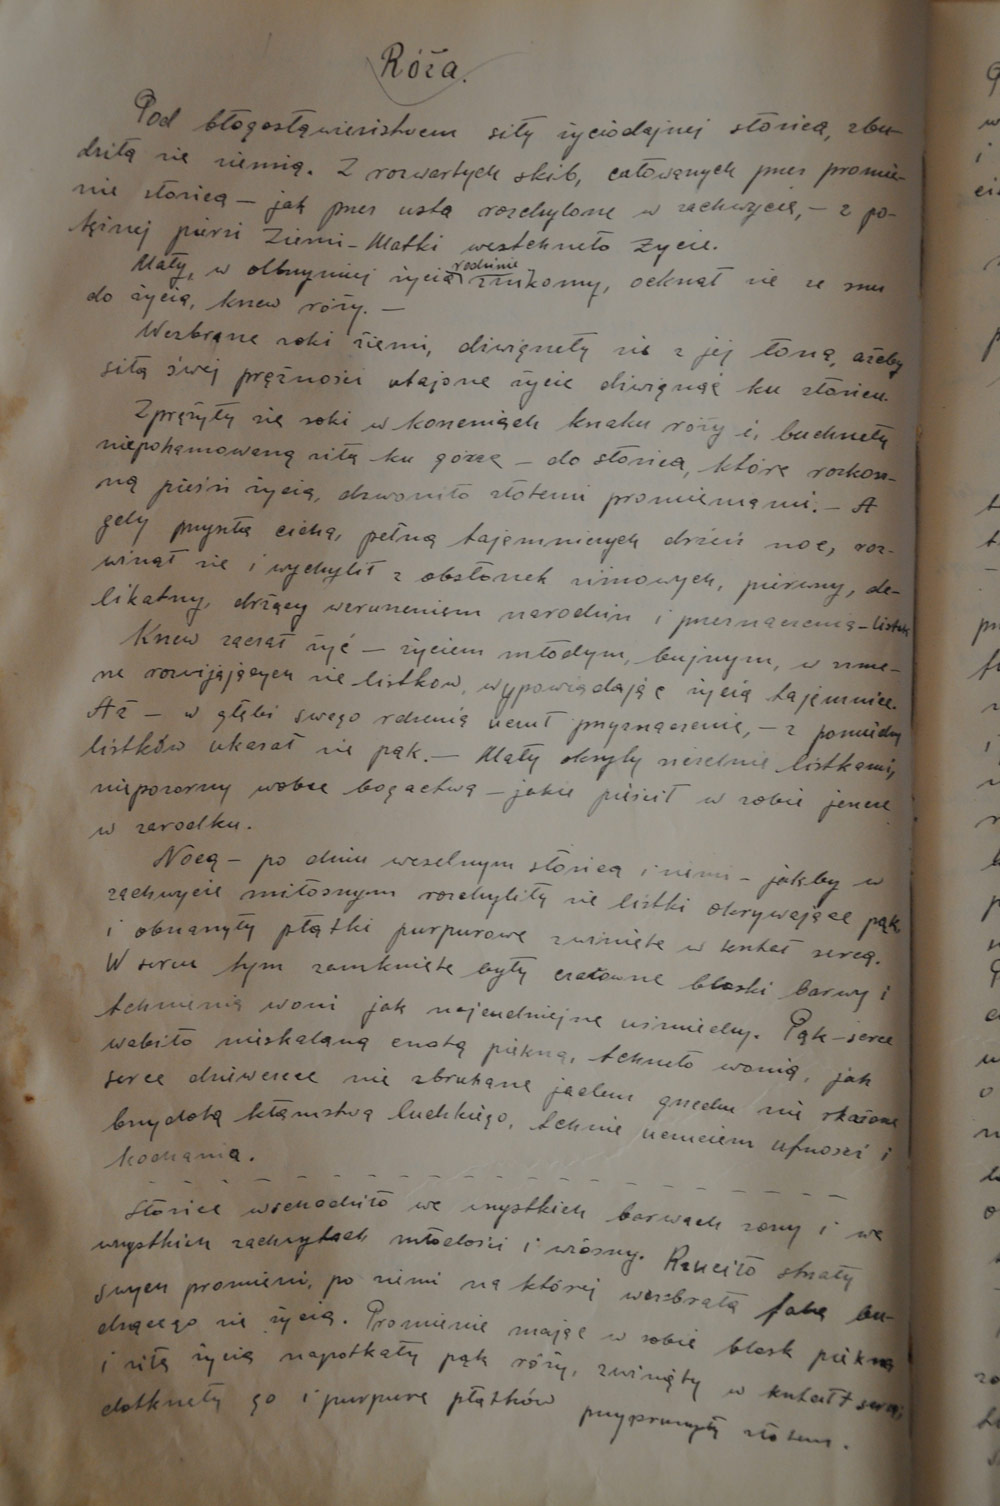 Róża.
Pod błogosławieństwem siły życiodajnej słońca, zbu-
dziła się ziemia. Z rozwartych skib, całowanych przez promie-
nie słońca — jak przez usta rozchylone w zachwycie, — z po-
tężnej piersi Ziemi-Matki westchnęło życie.
Mały, w olbrzymiej życia rodzinie znikomy, ocknął się ze snu
do życia, krzew róży. —
Wezbrane soki ziemi, dźwignęły się z jej łona, ażeby
siłą swej prężności utajone życie dźwignąć ku słońcu.
Zprężyły się soki w korzeniach krzaku róży i, buchnęły
niepohamowaną siłą ku górze — do słońca, które rozkosz-
ną pieśń życia, dzwoniło złotemi promieniami. — A
gdy przyszła cicha, pełna tajemniczych drżeń noc, roz-
winął się i wychylił z obsłonek zimowych, pierwszy, de-
likatny, drżący wzruszeniem narodzin i przeznaczenia — listek
Krzew zaczął żyć — życiem młodym, bujnym, w szme-
rze rozwijających się listków, wypowiadając życia tajemnice.
Aż — w głębi swego rdzenia uczuł przyznaczenie, — z pomiędzy
listków ukazał się pąk. — Mały okryty szczelnie listkami,
niepozorny wobec bogactwa — jakie pieścił w sobie jeszcze
w zarodku.
Nocą — po dniu weselnym słońca i ziemi — jakby w
zachwycie miłosnym rozchyliły się listki okrywające pąk
i obnażyły płatki purpurowe zwinięte w kształt serca.
W sercu tym zamknięte były czarowne blaski barwy i
tchnienia woni jak najcudniejsze uśmiechy. Pąk-serce
wabiło nieskalaną cnotą piękna, tchnęło wonią, jak
serce dziewczęce nie zbrukane jadem grzechu nie skażone
brzydotą kłamstwa ludzkiego, tchnie uczuciem ufności i
kochania.
Słońce wschodziło we wszystkich barwach zorzy i we
wszystkich zachwytach młodości i wiosny. Rzuciło strzały
swych promieni, po ziemi na której wezbrała fala bu-
dzącego się życia. Promienie mając w sobie blask piękna
i siłę życia napotkały pąk róży, zwinięty w kształt serca,
dotknęły go i purpurę płatków przyprószyły złotem.